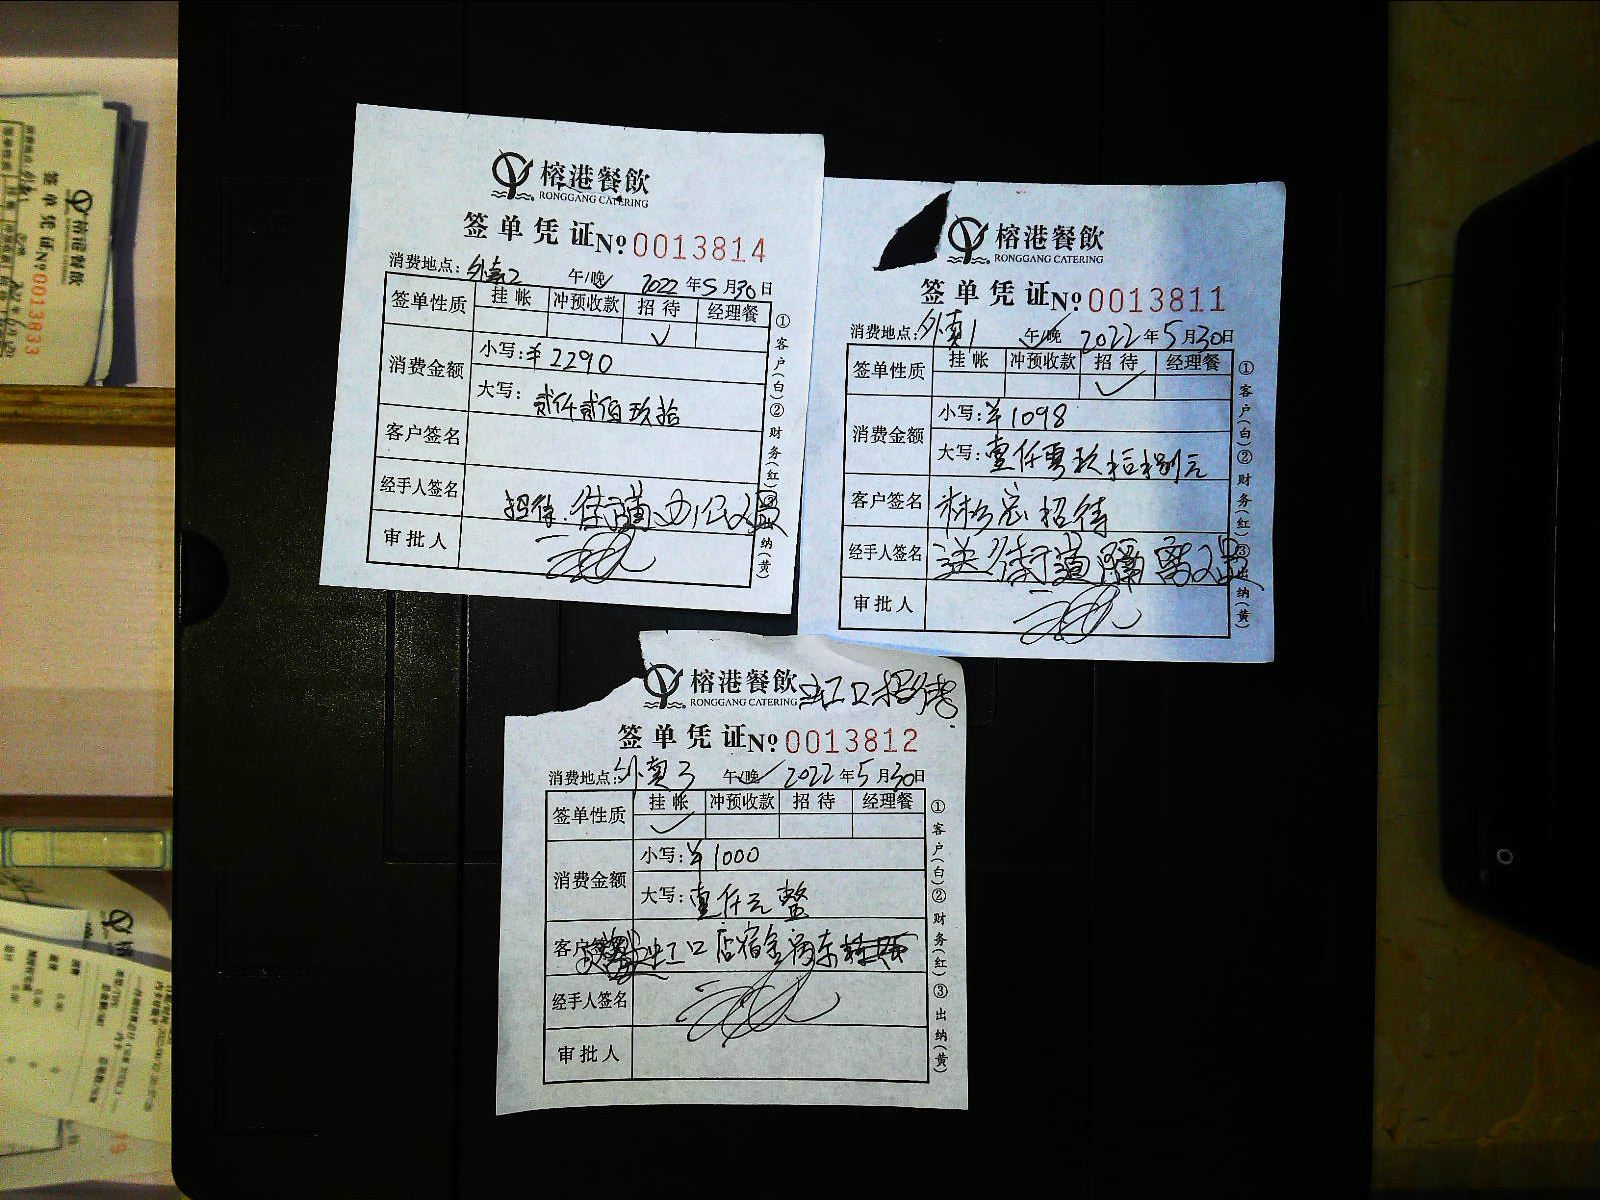 榕港餐飲
RONGGANG CATERING
签单凭证 Nº 0013814
消费地点：外卖2 午/晚 2022年5月30日
签单性质 挂帐 冲预收款 招待 经理餐
✓
消费金额 小写：¥2290
大写：贰仟贰佰玖拾
客户签名
经手人签名 招待：街道办公人员
审批人
①客户(白)②财务(红)③出纳(黄)
榕港餐飲
RONGGANG CATERING
签单凭证 Nº 0013811
消费地点：外卖1 午/晚 2022年5月30日
签单性质 挂帐 冲预收款 招待 经理餐
✓
消费金额 小写：¥1098
大写：壹仟零玖拾捌元
客户签名 招待
经手人签名 送街道隔离人员
审批人
①客户(白)②财务(红)③出纳(黄)
榕港餐飲 招待
RONGGANG CATERING
签单凭证 Nº 0013812
消费地点：外卖3 午/晚 2022年5月30日
签单性质 挂帐 冲预收款 招待 经理餐
✓
消费金额 小写：¥1000
大写：壹仟元整
客户签名 口店宿舍房东
经手人签名
审批人
①客户(白)②财务(红)③出纳(黄)
榕港餐飲
签单凭证 Nº 0013833